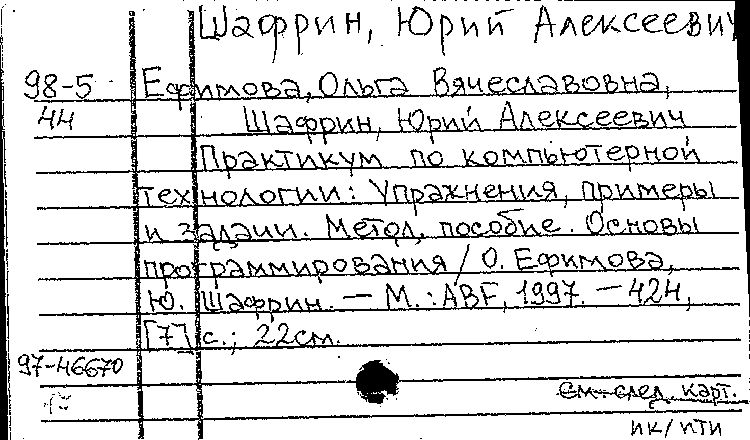 Шафрин, Юрий Алексеевич
98-5 Ефимова, Ольга Вячеславовна,
44 Шафрин, Юрий Алексеевич
Практикум по компьютерной
технологии: Упражнения, примеры
и задачи. Метод. пособие. Основы
программирования / О. Ефимова,
Ю. Шафрин. — М.: ABF, 1997. — 424,
[7] с.; 22см.
97-46670
См. след. карт.
ПК/ПТИ